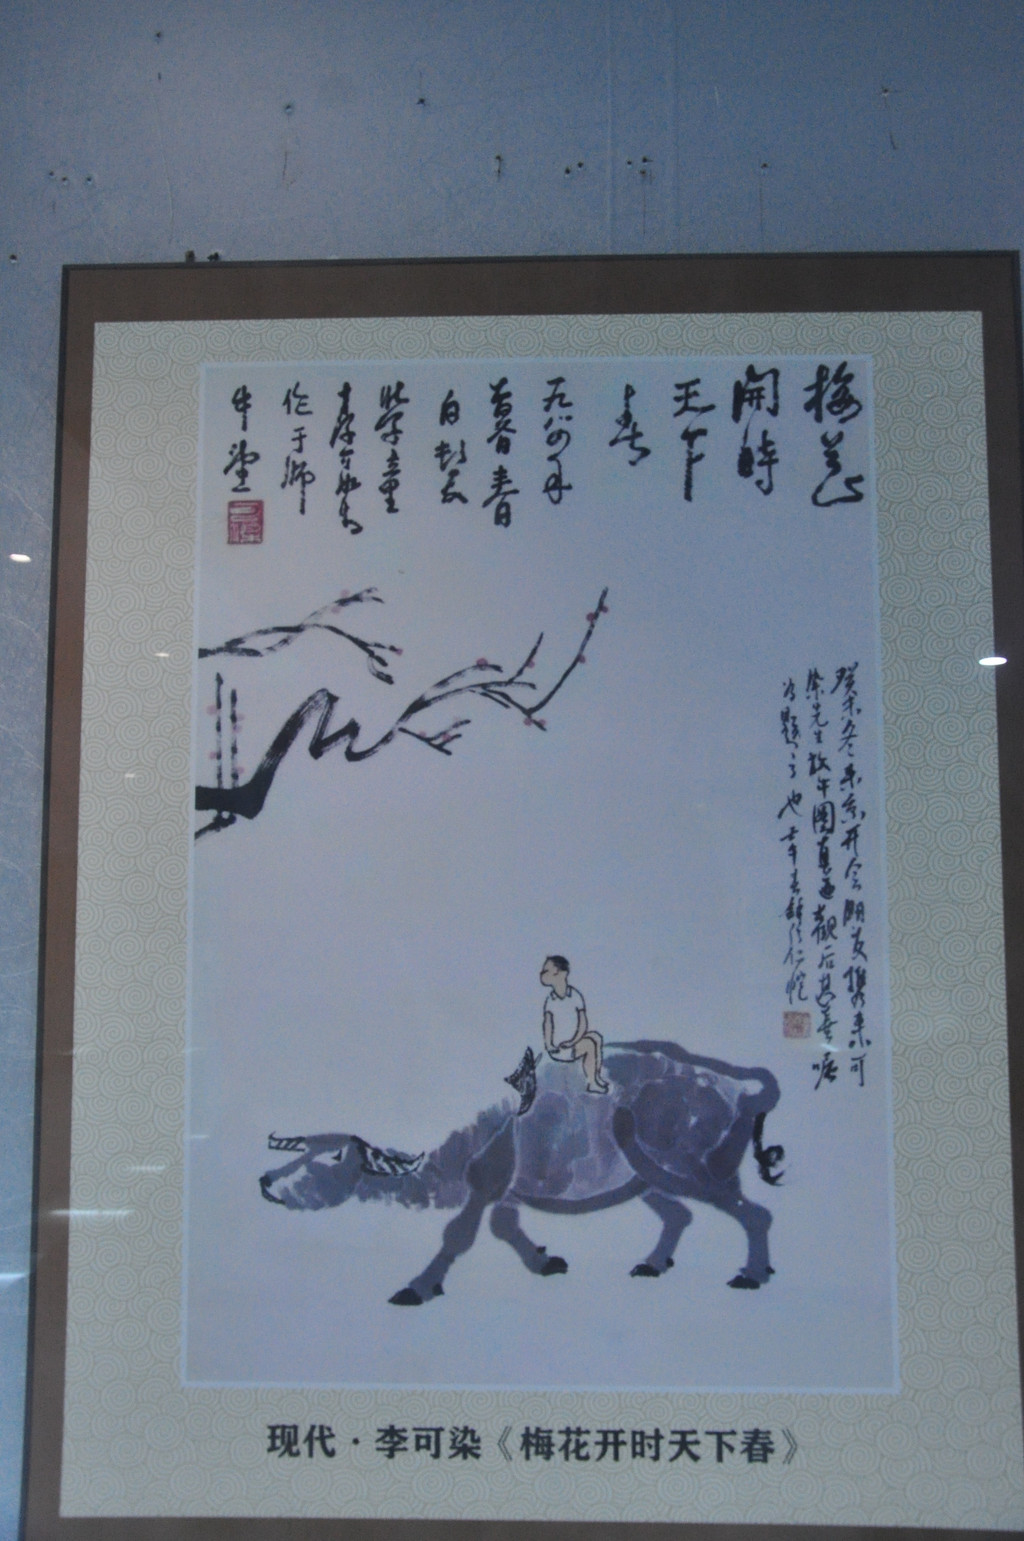 梅花
開時
天下
春
一九八四年
暮春
白髮
牧童
李可染
作于師
牛堂
癸未冬来京开会朋友携来可
染先生放牛圖真迹觀后甚喜
為題之也
现代·李可染《梅花开时天下春》